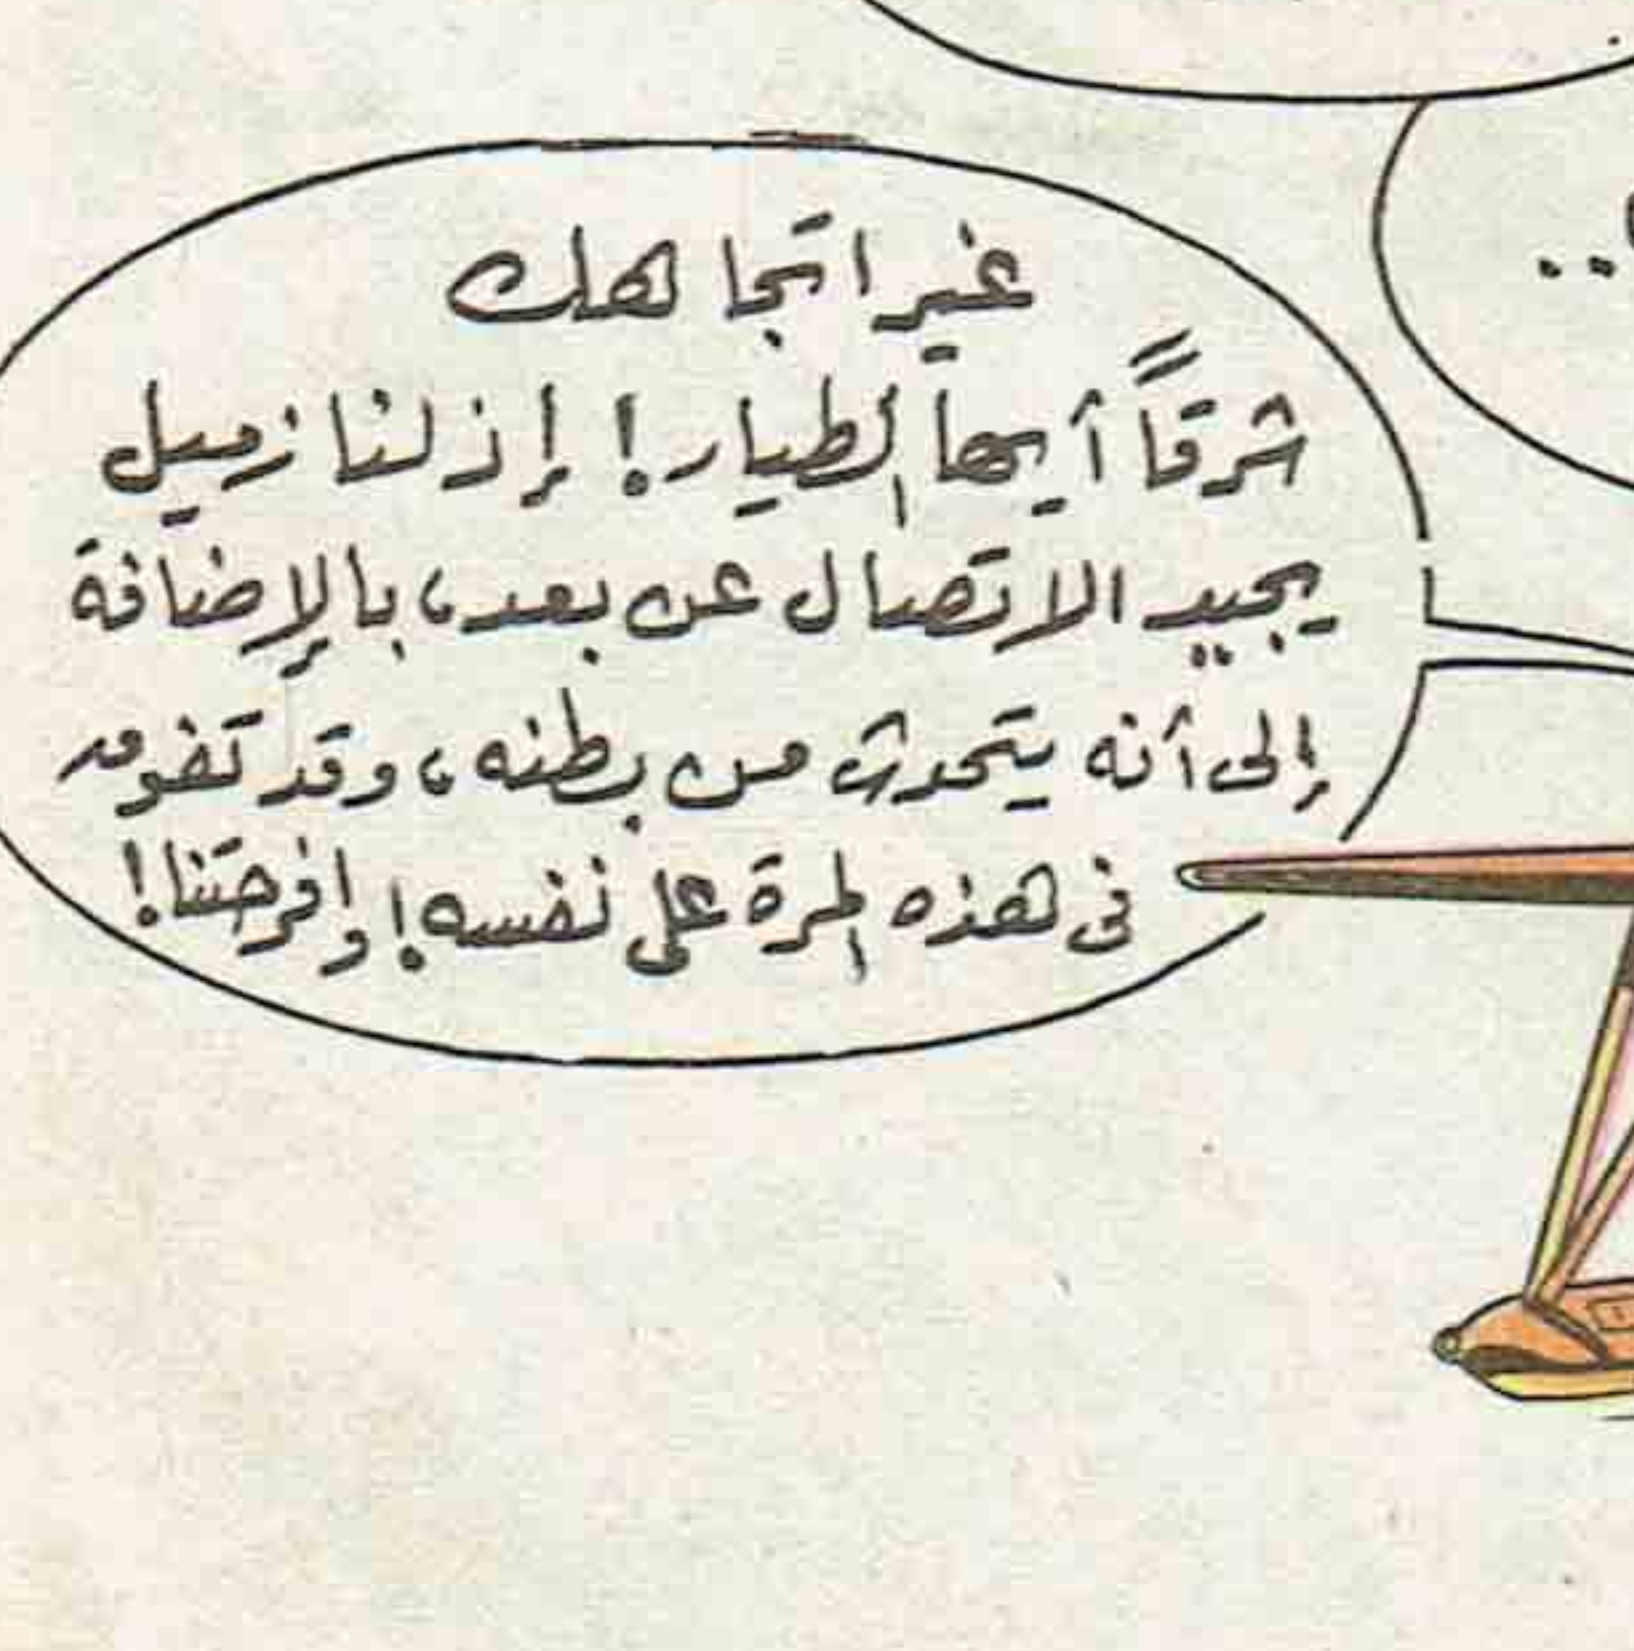 غير اتجاهك
شرقاً أيها الطيار! إذ لنا زميل
يجيد الاتصال عن بعد، بالإضافة
إلى أنه يتحدث من بطنه، وقد تفوق
فى هذه المرة على نفسه! وافرحتنا!
..